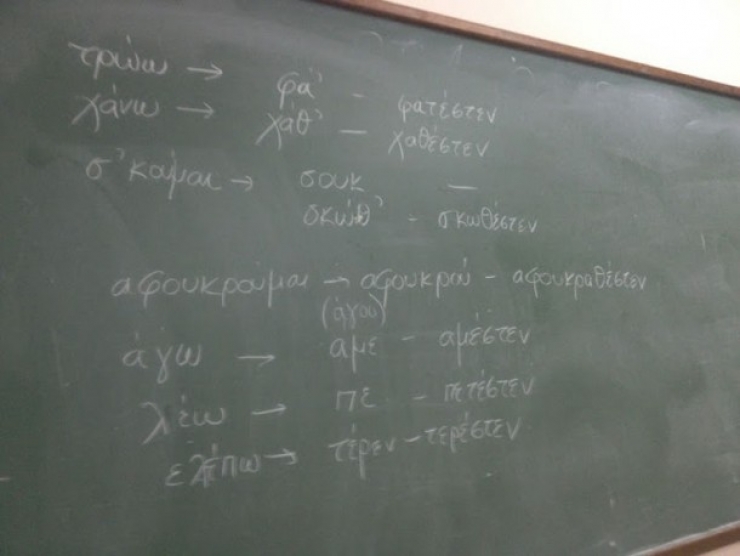 τρώω → φά' - φατέστεν
χάνω → χάθ' - χαθέστεν
σ'κούμαι → σουκ —
σκώθ' - σκωθέστεν
αφουκρούμαι → αφουκρού - αφουκραθέστεν
(άγου)
άγω → αμε - αμέστεν
λέω → πε - πετέστεν
ελέπω → τέρεν - τερέστεν